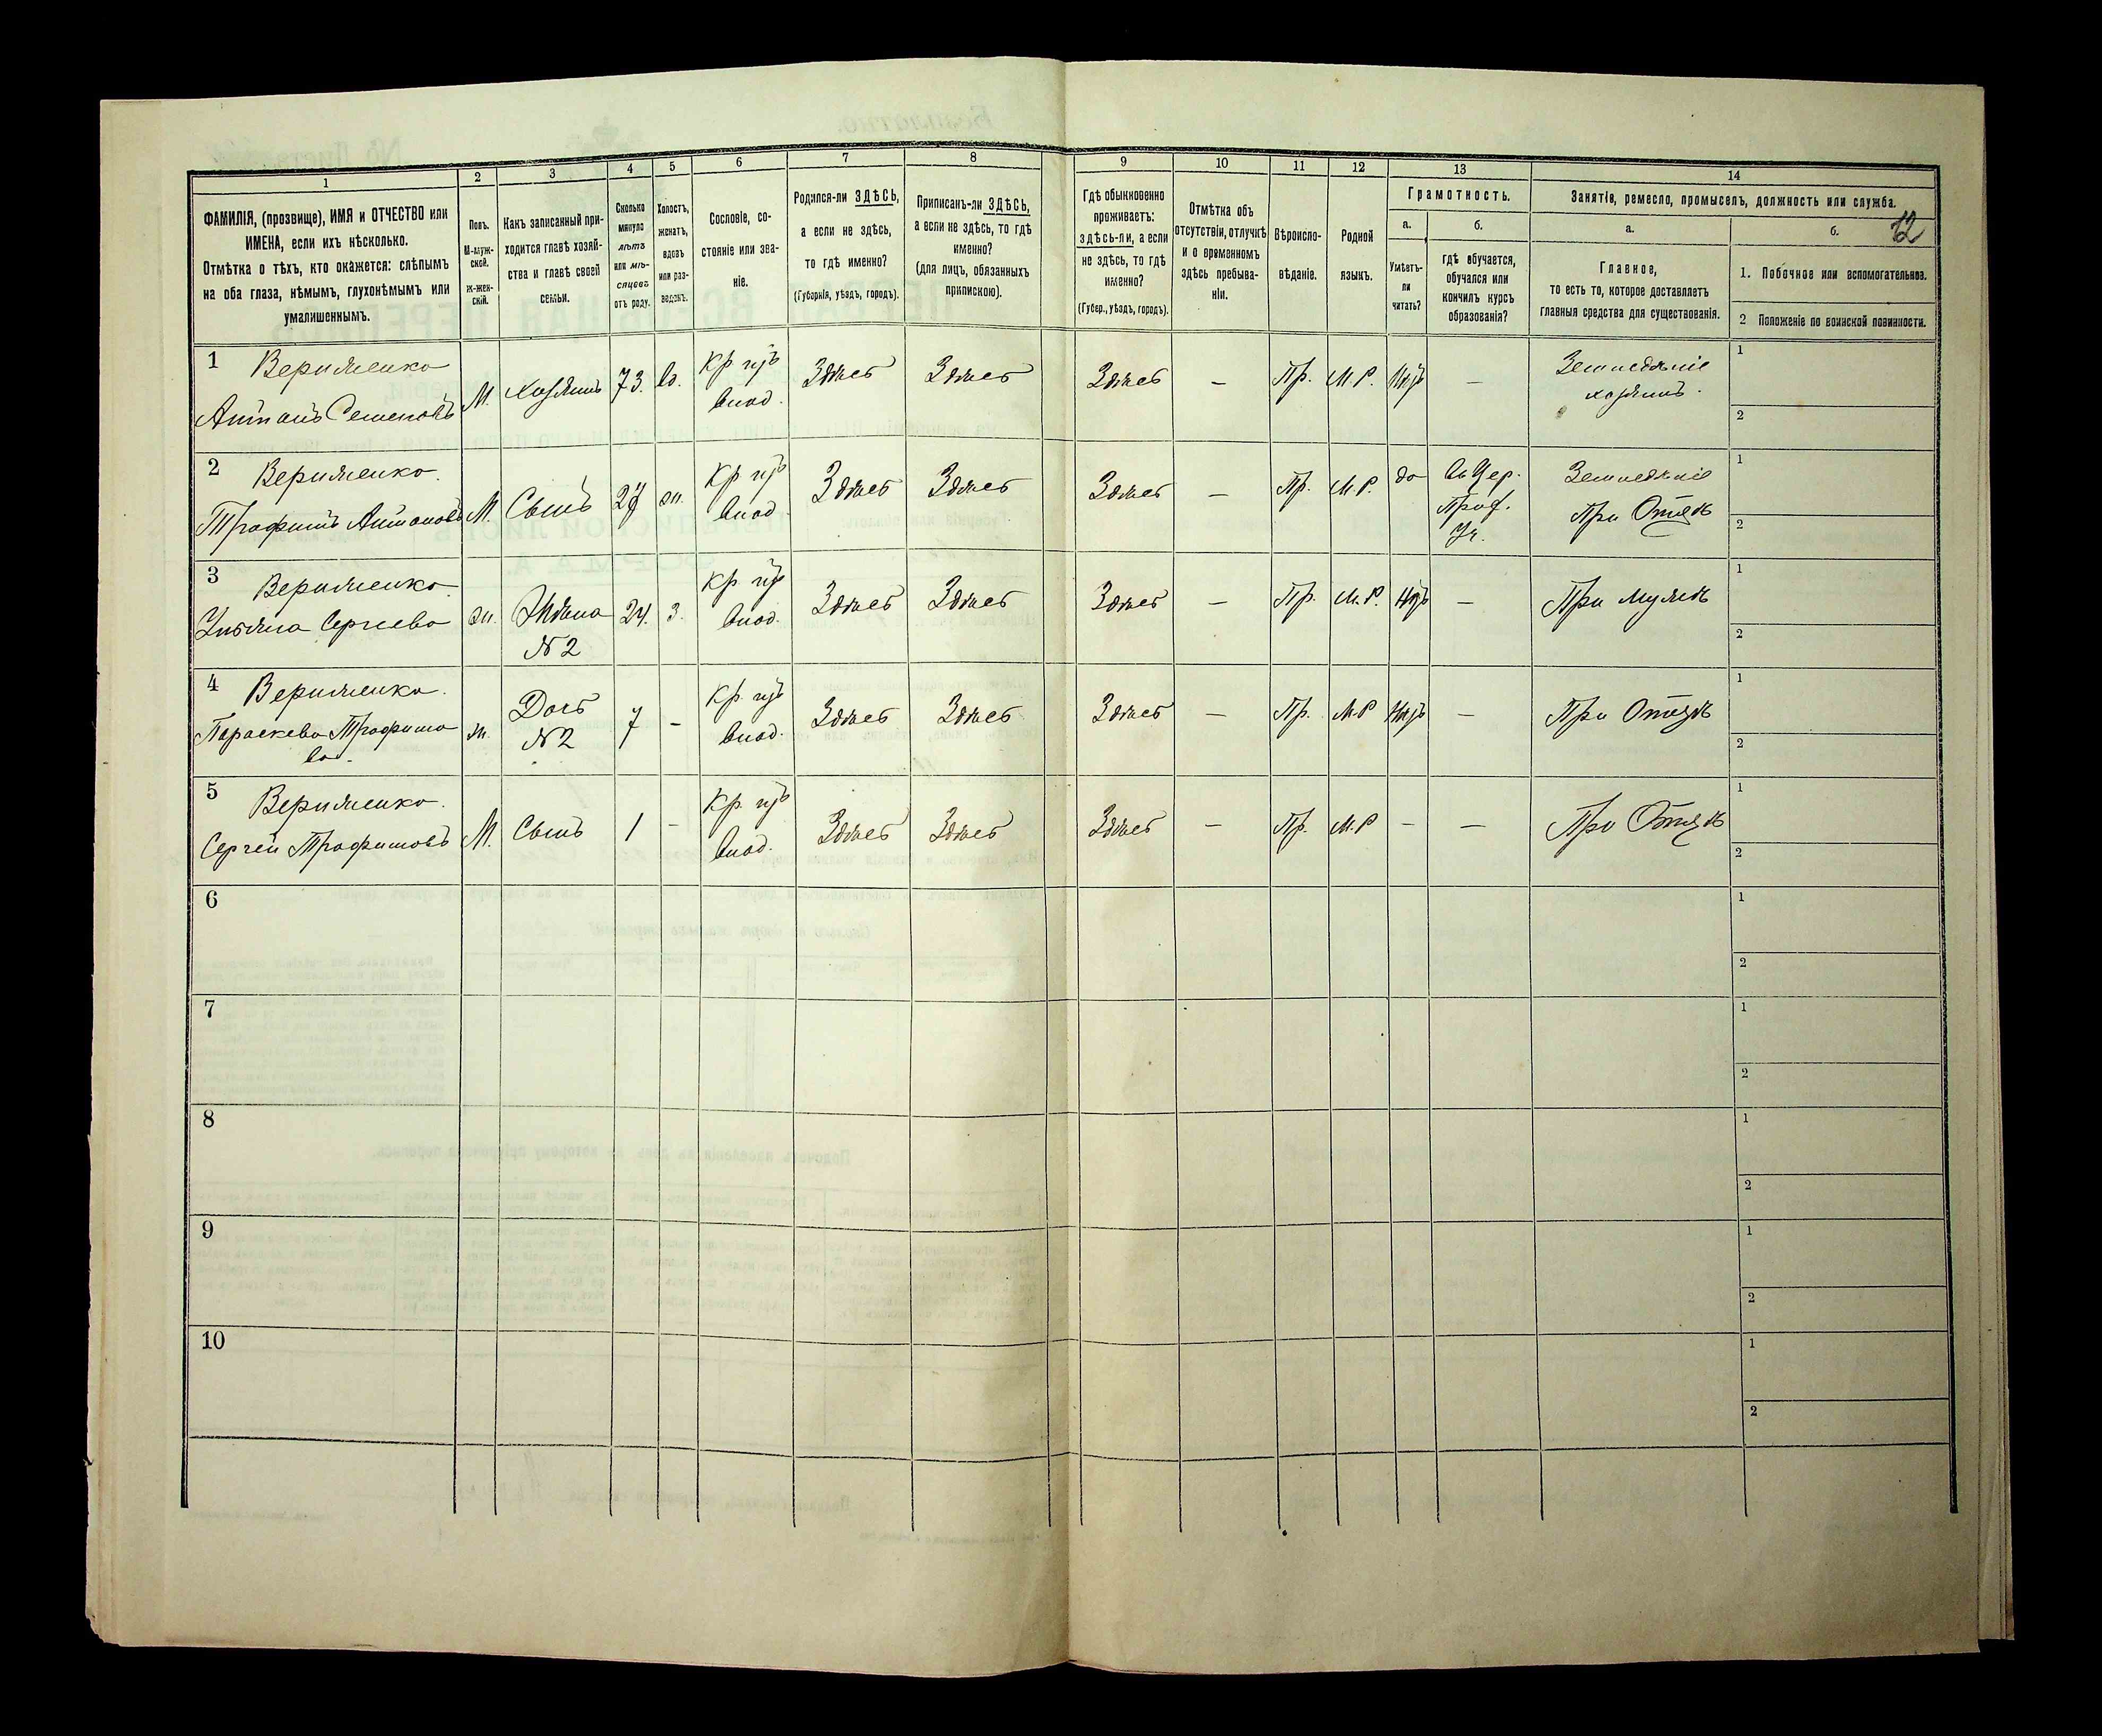 1
ФАМИЛІЯ, (прозвище), ИМЯ и ОТЧЕСТВО или
ИМЕНА, если ихъ нѣсколько.
Отмѣтка о тѣхъ, кто окажется: слѣпымъ
на оба глаза, нѣмымъ, глухонѣмымъ или
умалишеннымъ.
2
Полъ.
М-муж-
ской.
Ж-жен-
скій.
3
Какъ записанный при-
ходится главѣ хозяй-
ства и главѣ своей
семьи.
4
Сколько
минуло
лѣтъ
или мѣ-
сяцевъ
отъ роду.
5
Холостъ,
женатъ,
вдовъ
или раз-
веденъ.
6
Сословіе, со-
стояніе или зва-
ніе.
7
Родился-ли ЗДѢСЬ,
а если не здѣсь,
то гдѣ именно?
(Губернія, уѣздъ, городъ).
8
Приписанъ-ли ЗДѢСЬ,
а если не здѣсь, то гдѣ
именно?
(для лицъ, обязанныхъ
припискою).
9
Гдѣ обыкновенно
проживаетъ:
здѣсь-ли, а если
не здѣсь, то гдѣ
именно?
(Губер., уѣздъ, городъ).
10
Отмѣтка объ
отсутствіи, отлучкѣ
и о временномъ
здѣсь пребыва-
ніи.
11
Вѣроиспо-
вѣданіе.
12
Родной
языкъ.
13
Грамотность.
а.
Умѣетъ-
ли
читать?
б.
гдѣ обучается,
обучался или
кончилъ курсъ
образованія?
14
Занятіе, ремесло, промыселъ, должность или служба.
12
а.
Главное,
то есть то, которое доставляетъ
главныя средства для существованія.
б.
1. Побочное или вспомогательное.
2 Положеніе по воинской повинности.
1 Веримиенко
Антонъ Семеновъ
М. Хозяинъ 73. в. Кр изъ
влад. Здѣсь Здѣсь Здѣсь — Пр. М.Р. Нѣтъ — Земледѣліе
хозяинъ.
1
2
2 Веримиенко.
Трофимъ Антоновъ
М. Сынъ 27 ж. Кр изъ
влад. Здѣсь Здѣсь Здѣсь — Пр. М.Р. да Въ Цер.
Прих.
Уч.
Земледѣліе
При Отцѣ
1
2
3 Веримиенко.
Ульяна Сергѣева
ж. Жена
№ 2
24. З. Кр изъ
влад. Здѣсь Здѣсь Здѣсь — Пр. М.Р. Нѣтъ — При мужѣ
1
2
4 Веримиенко.
Параскева Трофимо
ва.
ж. Дочь
№ 2
7 — Кр изъ
влад. Здѣсь Здѣсь Здѣсь — Пр. М.Р Нѣтъ — При Отцѣ
1
2
5 Веримиенко.
Сергѣй Трофимовъ
М. Сынъ 1 — Кр изъ
влад. Здѣсь Здѣсь Здѣсь — Пр. М.Р — — При Отцѣ
1
2
6
1
2
7
1
2
8
1
2
9
1
2
10
1
2